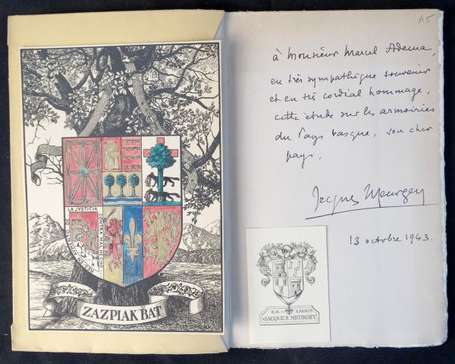 ZAZPIAK BAT
à Monsieur Marcel Adema,
en très sympathique souvenir
et en très cordial hommage,
cette étude sur les armoiries
du Pays basque, son cher
pays.
Jacques Meurgey
13 octobre 1943.
EX LIBRIS
JACQUES MEURGEY